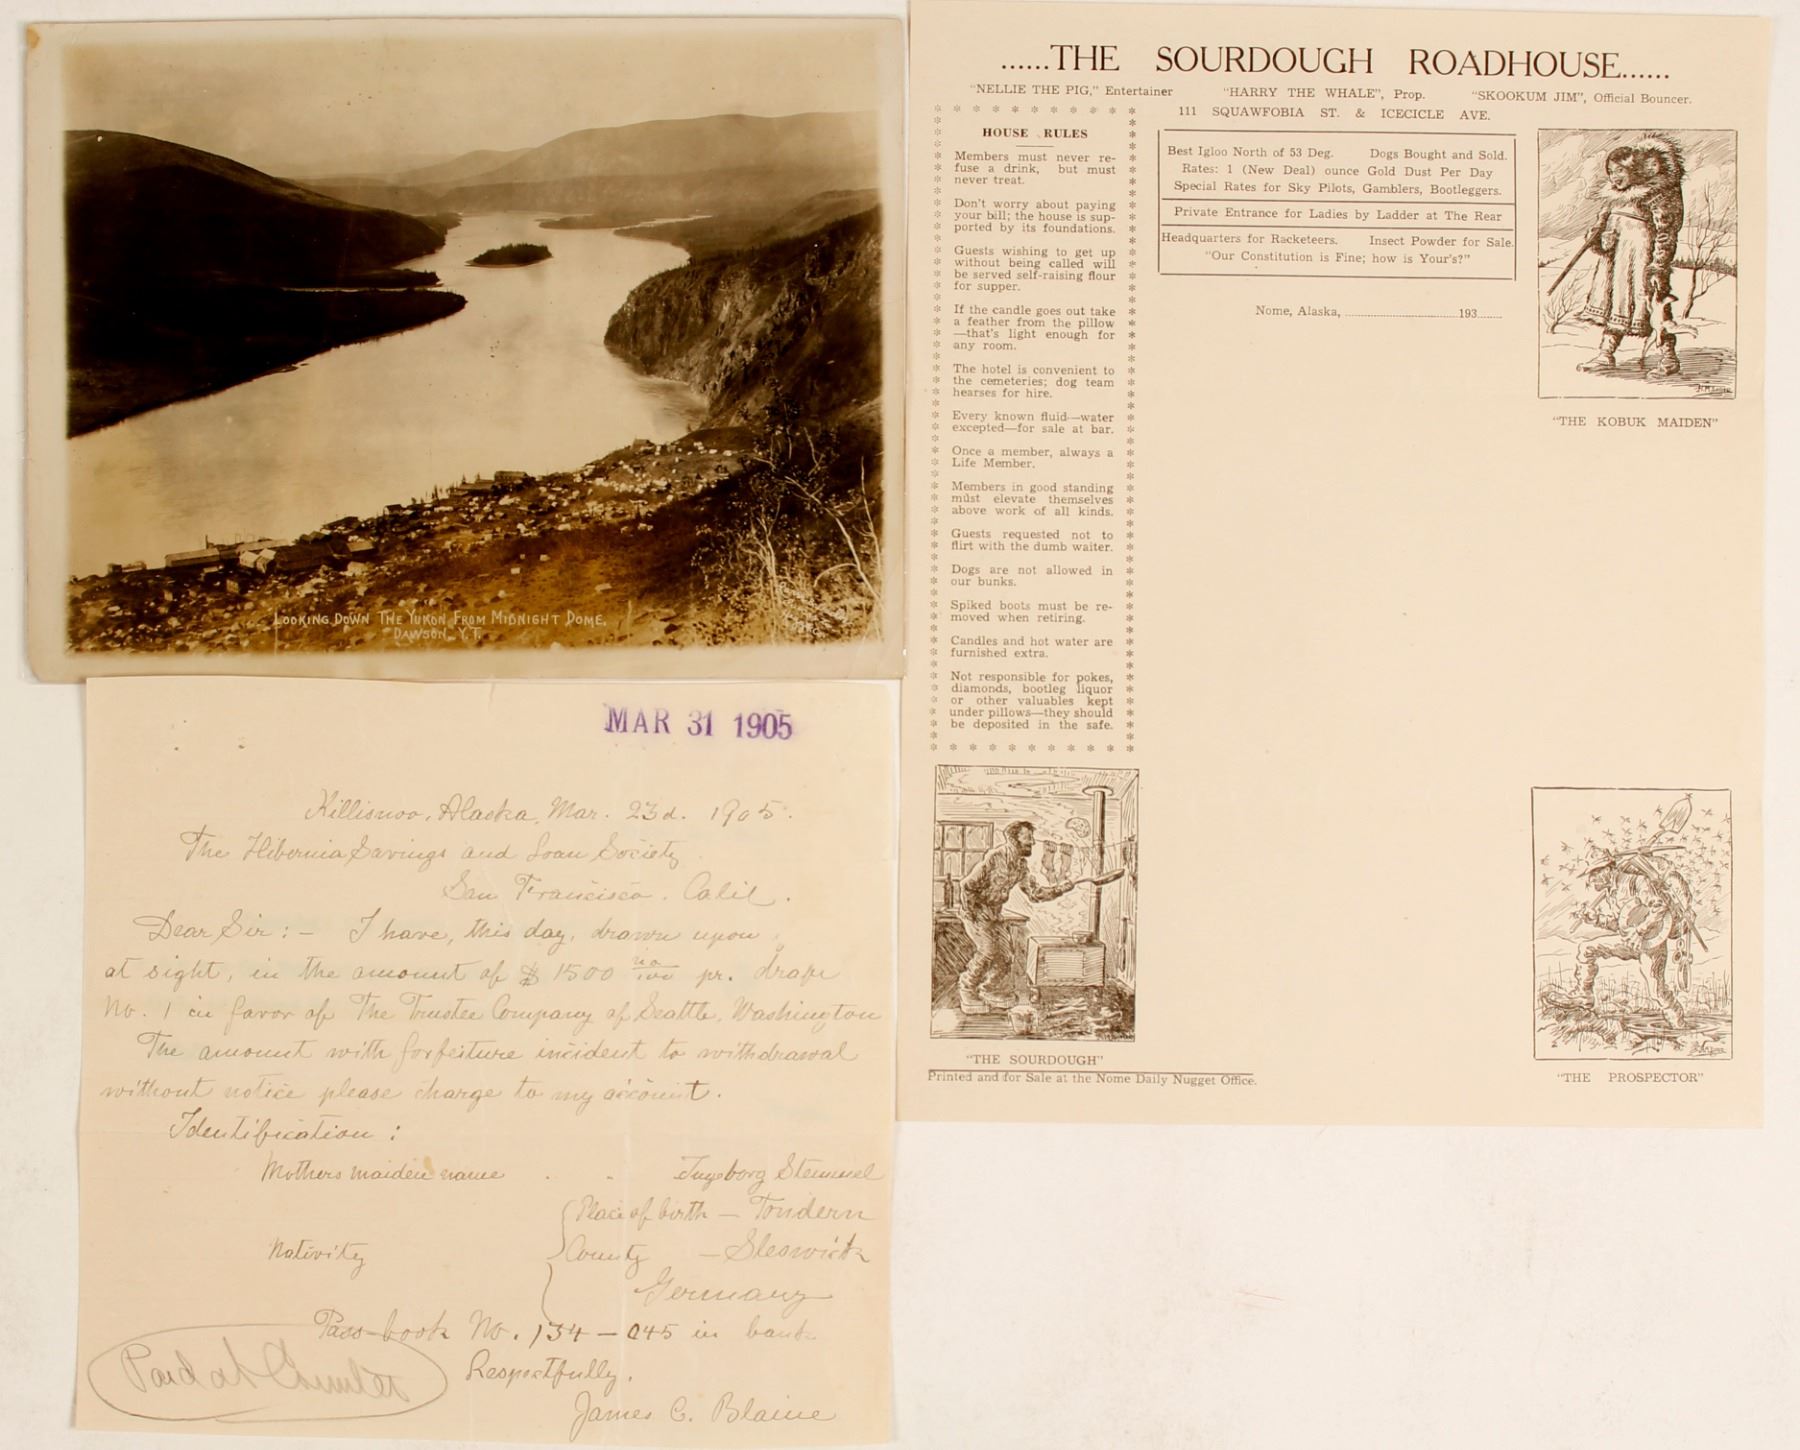 LOOKING DOWN THE YUKON FROM MIDNIGHT DOME.
DAWSON, Y.T.
MAR 31 1905
Killisnoo, Alaska, Mar. 23d. 1905.
The Hibernia Savings and Loan Society
San Francisco. Calif.
Dear Sir: – I have, this day, drawn upon
at sight, in the amount of $1500 no/100 pr. draft
No. 1 in favor of The Trustee Company of Seattle, Washington
The amount with forfeiture incident to withdrawal
without notice please charge to my account.
Identification:
Mothers maiden name . . Ingeborg Stemmel
Place of birth – Tondern
Nativity County – Sleswick
Germany
Pass-book No. 134–045 in bank
Respectfully.
Paid at
James C. Blaine
......THE SOURDOUGH ROADHOUSE......
"NELLIE THE PIG," Entertainer "HARRY THE WHALE", Prop. "SKOOKUM JIM", Official Bouncer.
111 SQUAWFOBIA ST. & ICECICLE AVE.
HOUSE RULES
Members must never re-
fuse a drink, but must
never treat.
Don't worry about paying
your bill; the house is sup-
ported by its foundations.
Guests wishing to get up
without being called will
be served self-raising flour
for supper.
If the candle goes out take
a feather from the pillow
—that's light enough for
any room.
The hotel is convenient to
the cemeteries; dog team
hearses for hire.
Every known fluid—water
excepted—for sale at bar.
Once a member, always a
Life Member.
Members in good standing
must elevate themselves
above work of all kinds.
Guests requested not to
flirt with the dumb waiter.
Dogs are not allowed in
our bunks.
Spiked boots must be re-
moved when retiring.
Candles and hot water are
furnished extra.
Not responsible for pokes,
diamonds, bootleg liquor
or other valuables kept
under pillows—they should
be deposited in the safe.
Best Igloo North of 53 Deg. Dogs Bought and Sold.
Rates: 1 (New Deal) ounce Gold Dust Per Day
Special Rates for Sky Pilots, Gamblers, Bootleggers.
Private Entrance for Ladies by Ladder at The Rear
Headquarters for Racketeers. Insect Powder for Sale.
"Our Constitution is Fine; how is Your's?"
Nome, Alaska, ................................193.......
"THE KOBUK MAIDEN"
"THE SOURDOUGH"
Printed and for Sale at the Nome Daily Nugget Office.
"THE PROSPECTOR"